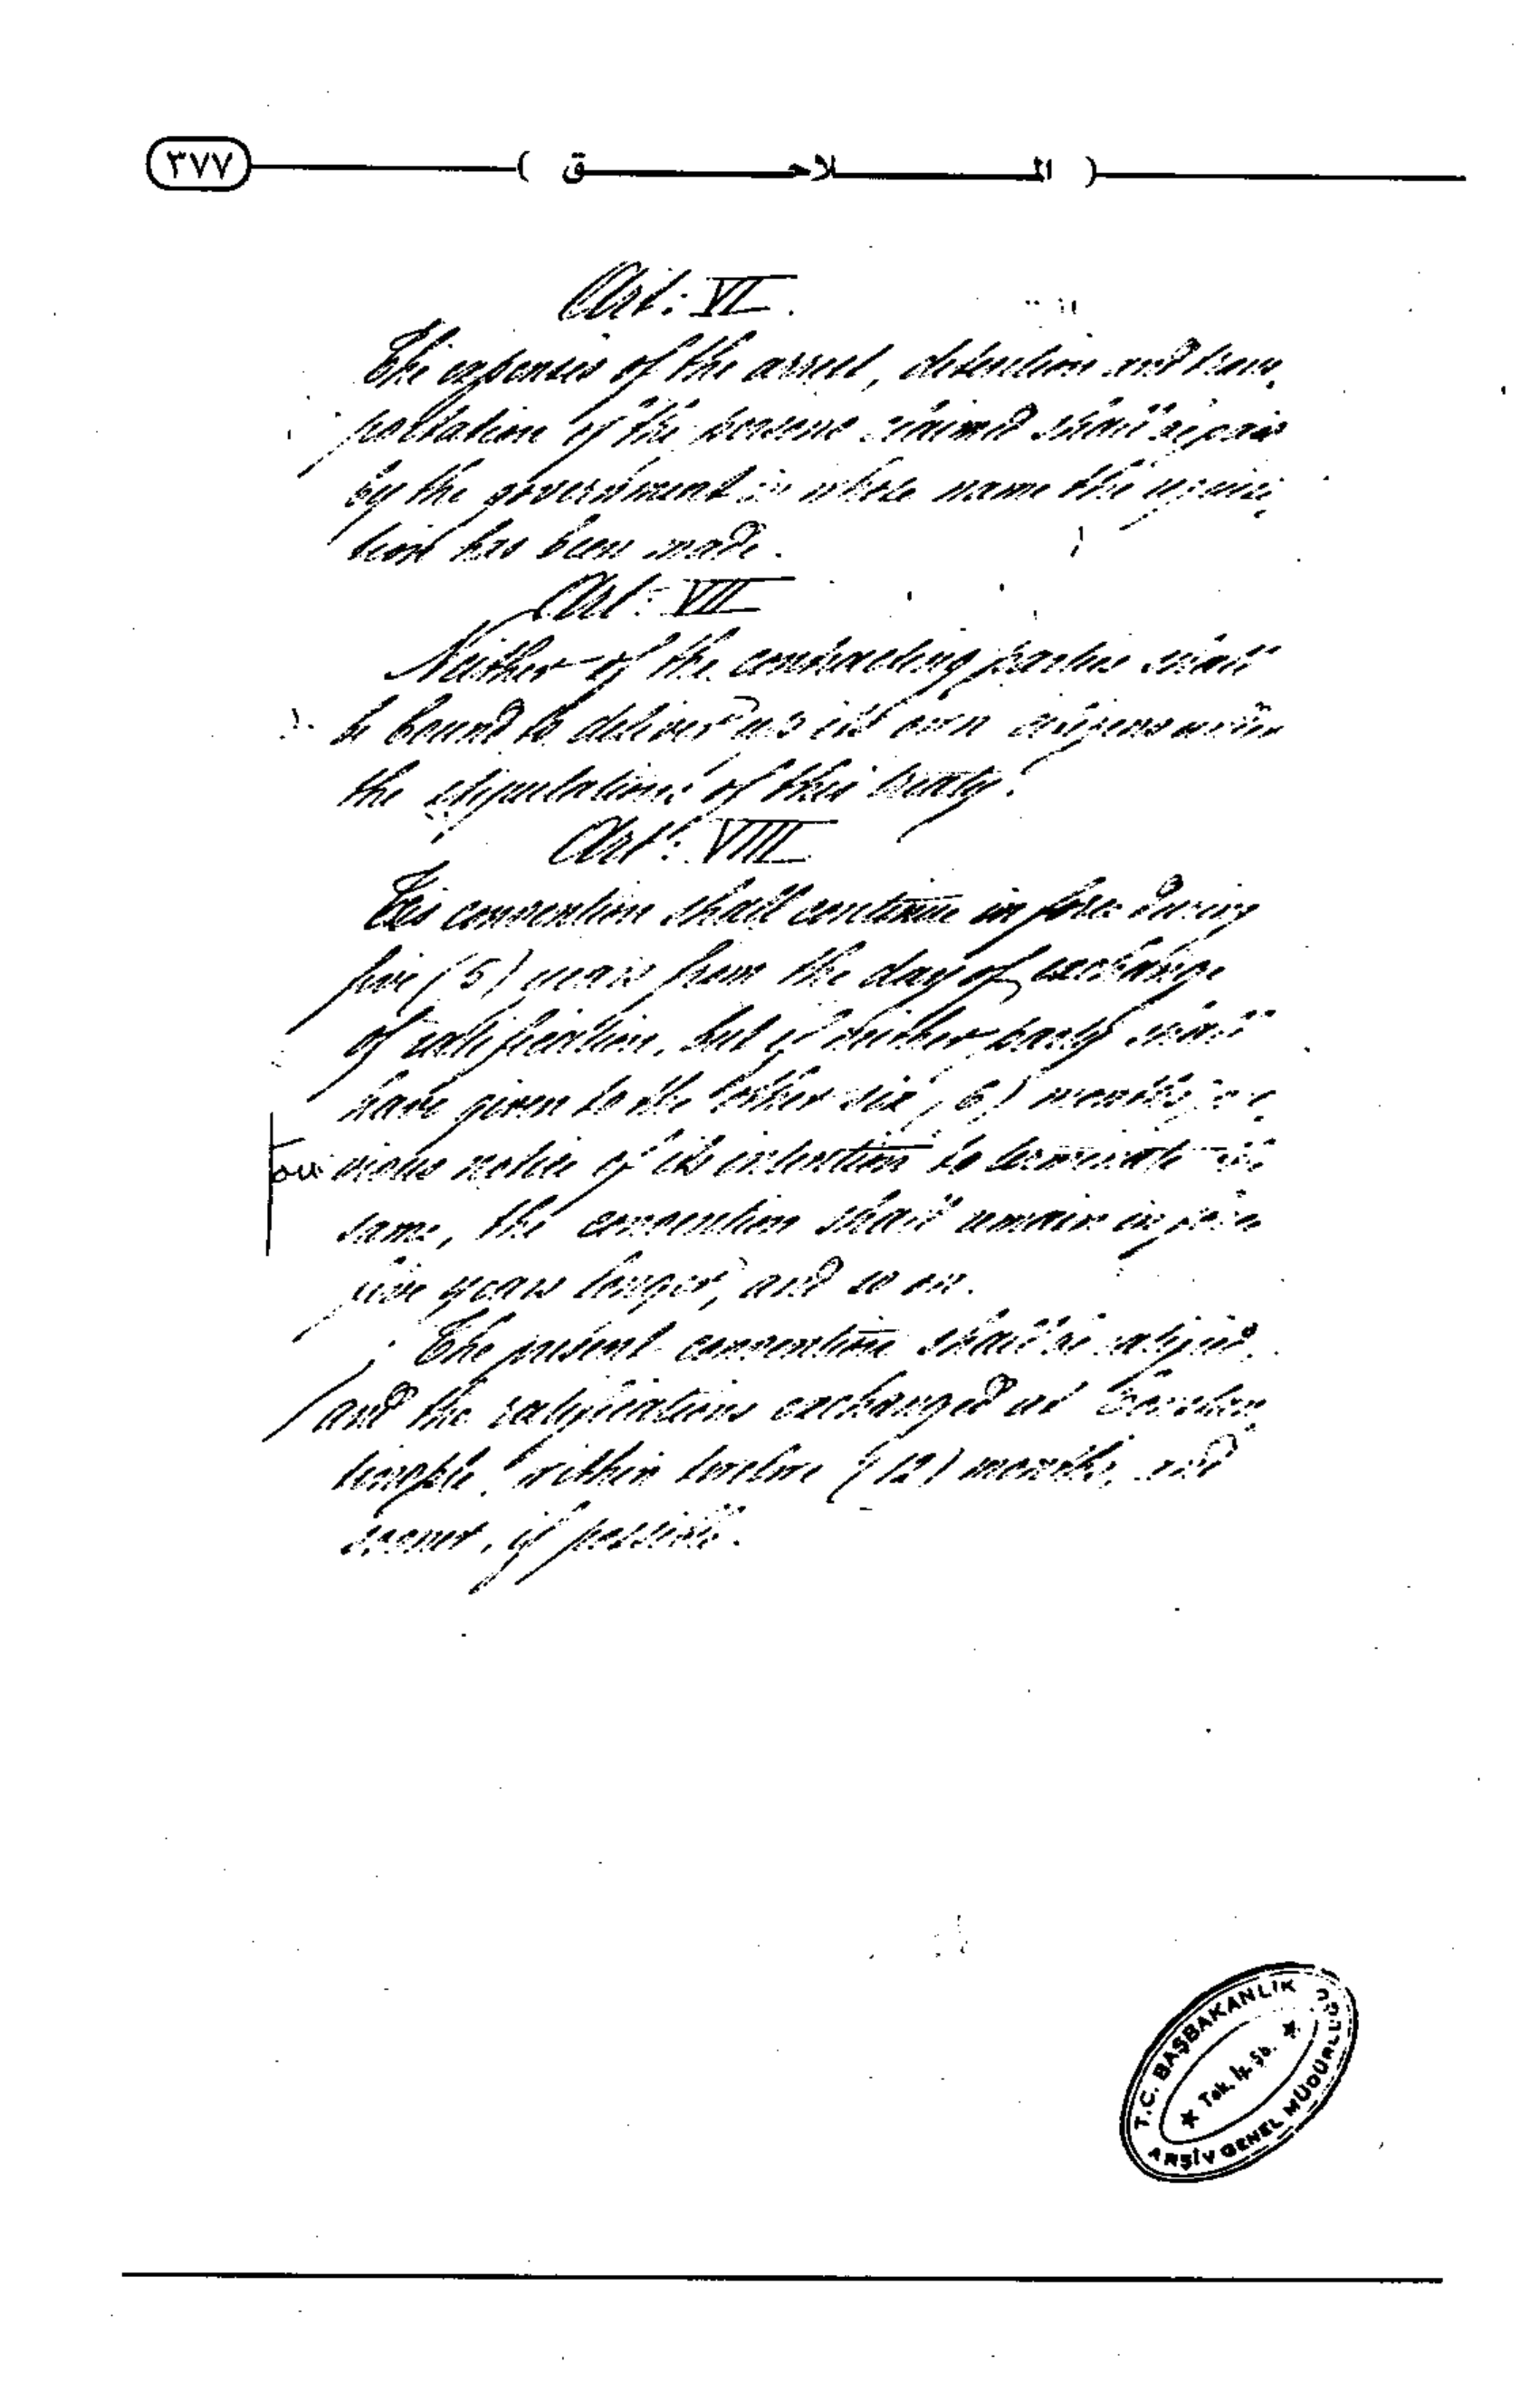 ٣٧٧
( الملاحق )
Art: VI.
The expenses of the arrest, detention and trans
portation of the persons claimed shall be paid
by the government in whose name the requisi
tion has been made.
Art: VII
Neither of the contracting parties shall
be bound to deliver up its own citizens under
the stipulations of this treaty.
Art: VIII
This convention shall continue in force during
five (5) years from the day of exchange
of ratification, but if neither party shall
have given to the other six (6) months pre
vious notice of its intention to terminate the
same, the convention shall remain in force
five years longer, and so on.
The present convention shall be ratified,
and the ratifications exchanged at Constan
tinople, within twelve (12) months, and
sooner, if possible.
T.C. BAŞBAKANLIK
Tek. İş. Şb.
ARŞİV GENEL MÜDÜRLÜĞÜ